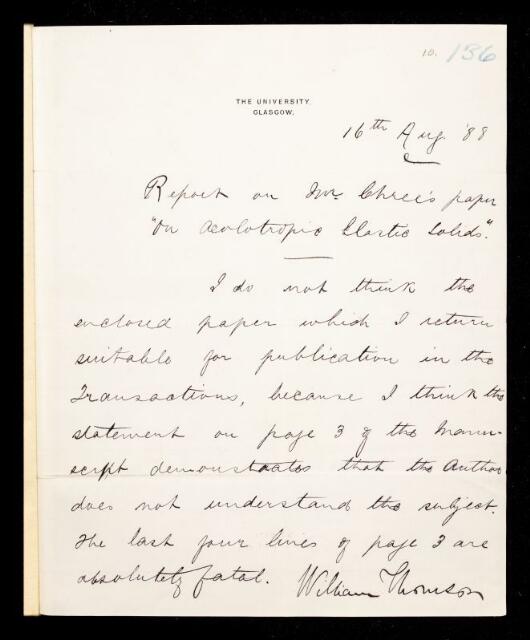 10. 136
THE UNIVERSITY,
GLASGOW,
16th Aug. '88
Report on Mr. Chree's paper
"On Aeolotropic Elastic Solids."
I do not think the
enclosed paper which I return
suitable for publication in the
Transactions, because I think the
statement on page 3 of the Manu-
script demonstrates that the Author
does not understand the subject.
The last four lines of page 3 are
absolutely fatal. William Thomson